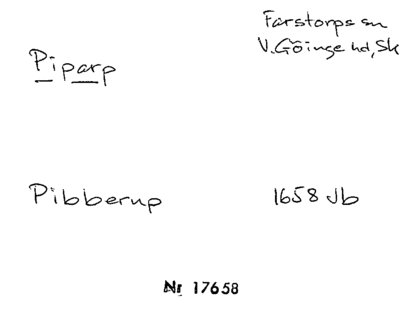 Farstorps sn
V. Göinge hd, Sk
Piparp
Pibberup 1658 Jb
Nr 17658